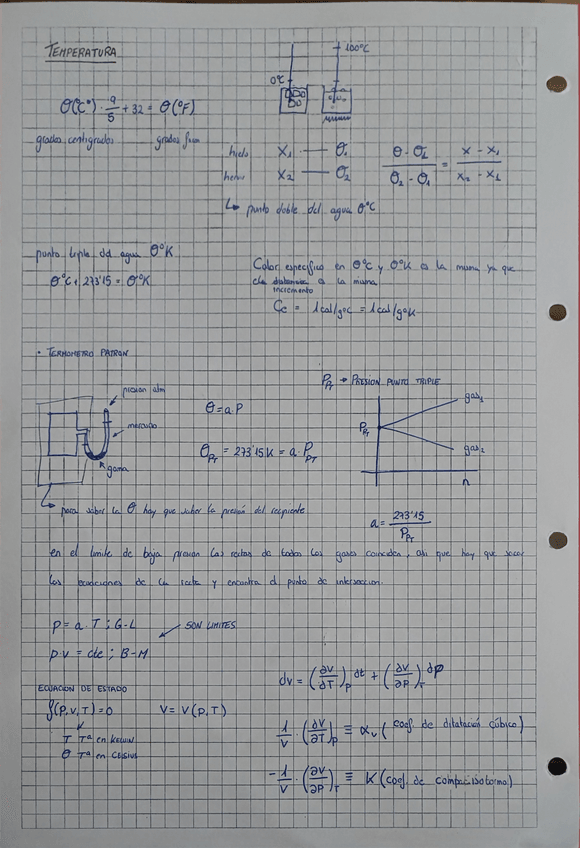 TEMPERATURA
100°C
0°C
θ(°C) · 9/5 + 32 = θ(°F)
grados centigrados grados faren
hielo X₁ — θ₁
hervir X₂ — θ₂
(θ - θ₁)/(θ₂ - θ₁) = (x - x₁)/(x₂ - x₁)
↳ punto doble del agua θ°C
punto triple del agua θ°K
θ°C + 273'15 = θ°K
Calor especifico en θ°C y θ°K es la misma ya que
la distancia es la misma
incremento
Ce = 1cal/g°C = 1cal/g°K
• TERMOMETRO PATRON
presion atm
mercurio
goma
θ = a·P
θPT = 273'15K = a·PPT
PPT → PRESION PUNTO TRIPLE
gas₁
PPT
gas₂
n
↳ para saber la θ hay que saber la presión del recipiente
a = 273'15/PPT
en el limite de baja presion las rectas de todos los gases coinciden, asi que hay que sacar
las ecuaciones de la recta y encontrar el punto de interseccion.
p = a·T ; G-L
SON LIMITES
p·v = cte ; B-M
dv = (∂V/∂T)p dt + (∂V/∂P)T dp
ECUACION DE ESTADO
f(P,V,T) = 0 V = V(P,T)
T Tª en KELVIN
θ Tª en CELSIUS
1/V · (∂V/∂T)p ≡ αv (coef. de dilatación cúbico)
-1/V · (∂V/∂P)T ≡ K (coef. de compac. isotermo)